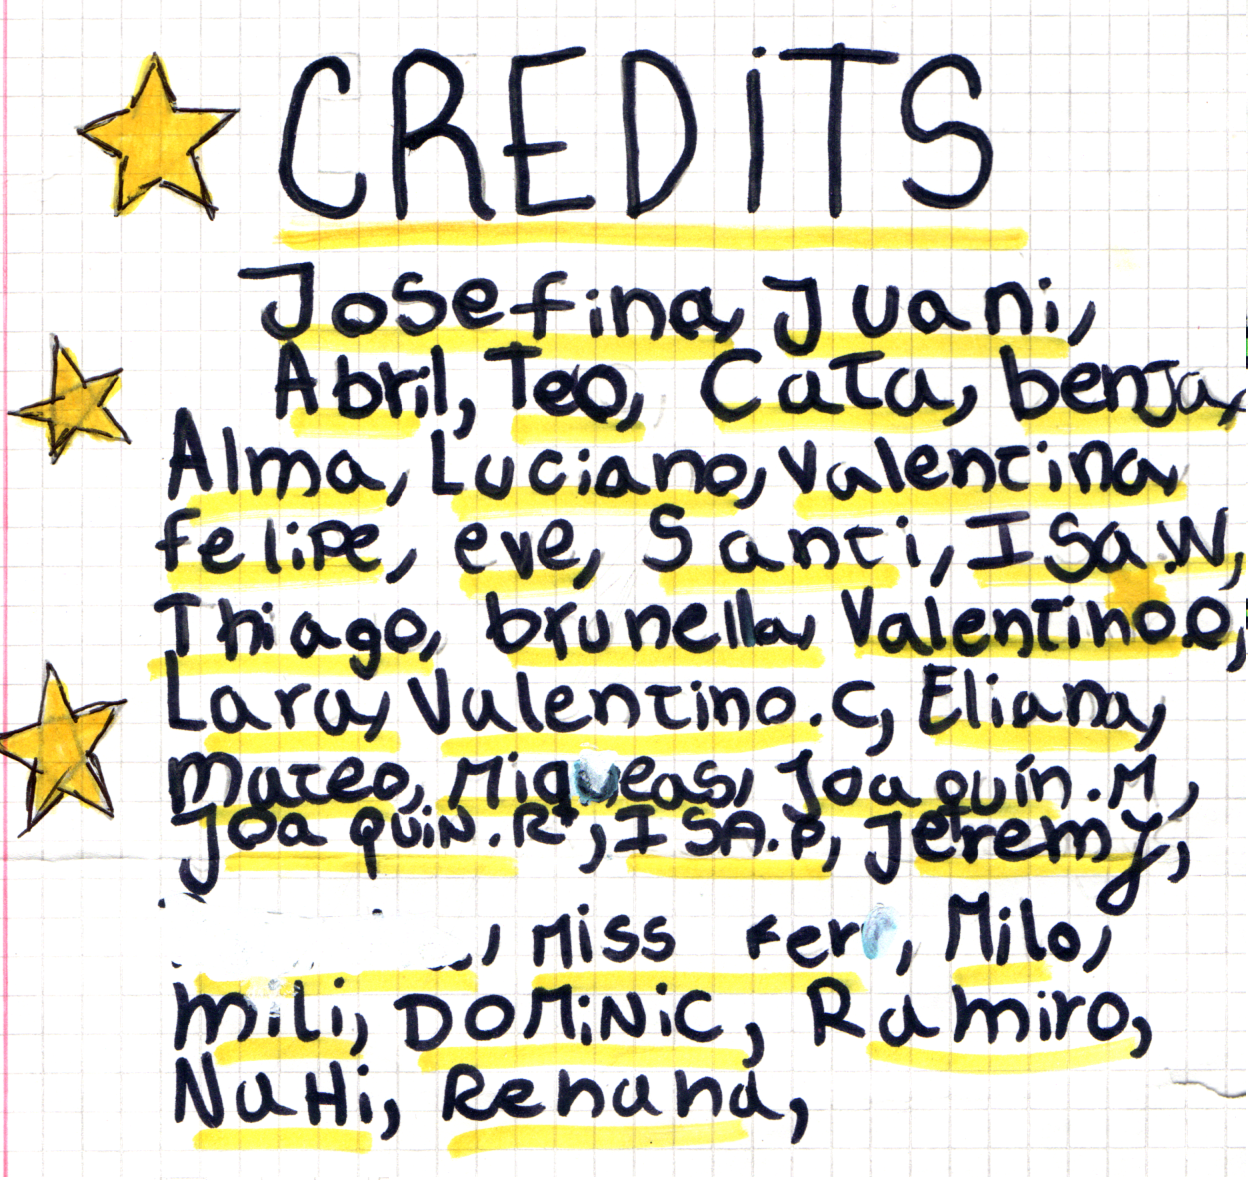 CREDiTS
Josefina, Juani,
Abril, Teo, Cata, benja,
Alma, Luciano, Valentina
felipe, eve, Santi, ISa.W,
Thiago, brunella, Valentino.O,
Lara, Valentino.C, Eliana,
Mateo, Miqueas, Joaquín.M,
JoaquiN.R, ISA.P, Jeremy,
, Miss Fer, Milo,
Mili, DOMiNiC, Ramiro,
NaHi, Renana,